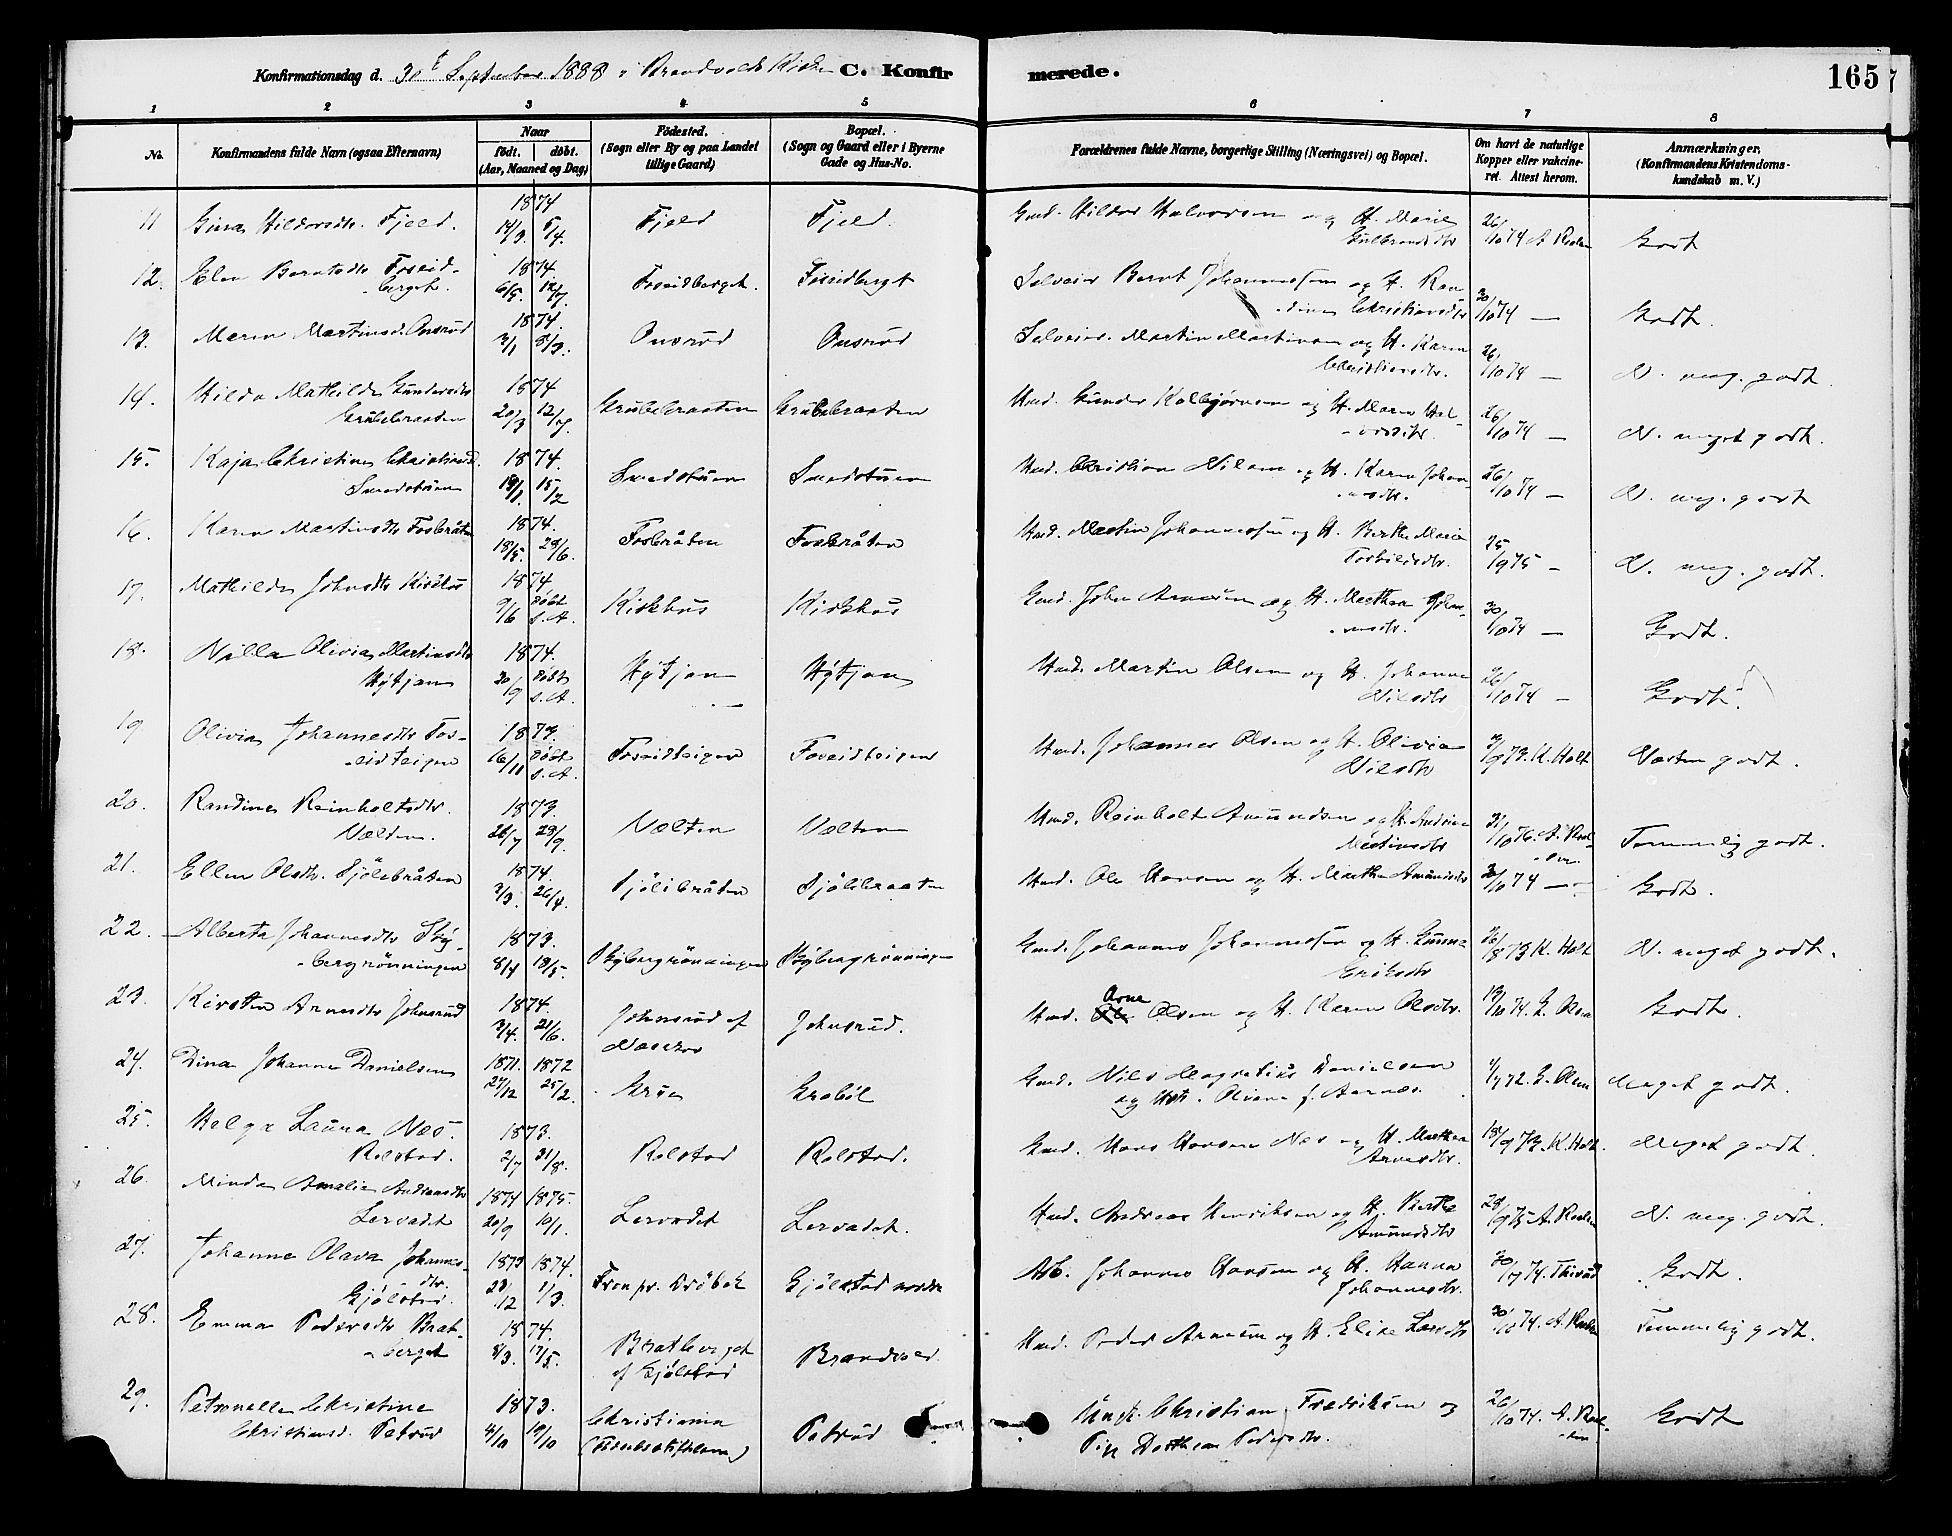 Konfirmationsdag d. 30t September 1888 i Brandvold Kirke C. Konfirmerede. 165
1 2 3 4 5 6 7 8
No. Konfirmandens fulde Navn (ogsaa Efternavn) Naar født. døbt. (Aar, Maaned og Dag) Födested. (Sogn eller By og paa Landet tillige Gaard) Bopæl. (Sogn og Gaard eller i Byerne Gade og Hus-No. Forældrenes fulde Navne, borgerlige Stilling (Næringsvei) og Bopæl. Om havt de naturlige Kopper eller vakcineret. Attest herom. Anmærkninger. (Konfirmandens Kristendomskundskab m. V.)
11 Gina Hildorsdtr. Fjeld. 1874 14/3. 5/4. Fjeld Fjeld. Gmd. Hildor Halvorsen og H. Marie Gulbrandsdtr 26/10 74 Godt
12. Elen Berntsdtr Foseidberget. 1874. 6/5. 12/7. Foseidberget. Foseidberget Selveier Bernt Johannessen og H. Randine Christiansdtr 30/10 74 — Godt.
13. Maren Martinsd. Onsrud 1874. 3/1 8/3. Onsrud Onsrud Selveier. Martin Martinsen og H. Karen Christiansdtr. 26/10 74 — N. meg. godt.
14. Hilda Mathilde Gundersdtr Grubebraaten 1874 20/3 12/7. Grubebraaten Grubebraaten Hmd. Gunder Kolbjørnsen og H. Maren Halvorsdtr. 26/10 74 — N. meget godt.
15. Kaja Christine Christiansd. Smedstuen 1874. 19/1 15/2 Smedstuen Smedstuen Hmd. Christian Nilsen og H. Karen Johannesdtr. 26/10 74 — N. meg. godt
16. Karen Martinsdtr Fosbråten 1874. 18/5. 28/6. Fosbråten Fosbråten Hmd. Martin Johannessen og H. Berthe Marie Torkildsdtr. 25/1 75 — N. meg. godt.
17. Mathilde Johnsdtr Kirkhus 1874. 9/6 døbt s. A. Kirkhus Kirkhus Gmd. John Arnesen og H. Marthea Johannesdtr. 30/10 74 — Godt.
18. Nilla Olivia Martinsdtr Hytjan 1874. 20/9 døbt s. A. Hytjan Hytjan Hmd. Martin Olsen og H. Johanne Nilsdtr 26/10 74 — Godt.
19 Olivia Johannesdtr Foseidteigen 1873. 16/11 døbt s. A. Foseidteigen Foseidteigen Hmd. Johannes Olsen og H. Olivia Nilsdtr K. Holt Næsten godt.
20. Randine Reinholtsdtr. Velten. 1873. 28/9. Velten Velten Hmd. Reinholt Amundsen og H. Andrine Martinsdtr 31/10 76. Temmelig godt.
21. Ellen Olsdtr. Sjölibråten 1874. 3/3. 26/4. Sjölibråten Sjölibraaten Hmd. Ole Hansen og H. Marthe Amundsdtr 30/10 74 — Godt.
22. Alberta Johannesdtr Skybergrønningen 1873. 8/4 18/5. Skybergrønningen Skybergrønningen Gmd. Johannes Johannessen og H. Gunna Eriksdtr 26/8 73 K. Holt N. meget godt.
23. Kirsten Arnesdtr Johnsrud 1874. 3/4. 21/6. Johnsrud af Johnsrud. Hmd. Arne Olsen og H. Karen Olsdtr. 19/10 74. G. Olsen Godt.
24. Dina Johanne Danielsen 1871. 1872 27/12 25/2. Grue Grobøl Gmd. Nils Magretius Danielsen og Hst. Oliane f. Aarnæs. 4/7 72. G. Olsen Meget godt.
25. Helga Laura Næs. Rolstad. 1873. 2/7 31/8. Rolstad Rolstad. Gmd. Hans Hansen Næs og H. Marthea Arnesdtr. 18/9 73. K. Holt. Meget godt.
26. Minda Amalie Andreasdtr Lervadet 1874 1875. 20/9 10/1. Lervadet Lervadet. Hmd. Andreas Henriksen og H. Berthe Amundsdtr 28/9 75 N. meg. godt.
27. Johanne Olava Johannesdtr. Gjølstad. 1873 1874. 1/3. Fron pr. Drøbak Gjølstad nordre Arb. Johannes Hansen og H. Hanna Johannesdtr. 30/7 74. Godt.
28. Emma Pedersdtr Bratberget 1874. 8/3. 17/5. Bratberget af Gjølstad Brandvold Hmd. Peder Arnesen og H. Elise Larsdtr 30/10 74. Temmelig godt.
29. Petronelle Christine Christiansd. Petrud 1873. 4/10 19/10 Christiania (Fødselsstiftelsen) Petrud Ungk. Christian Fredriksen og Pige Dorthea Pedersdtr. 26/10 74. Godt